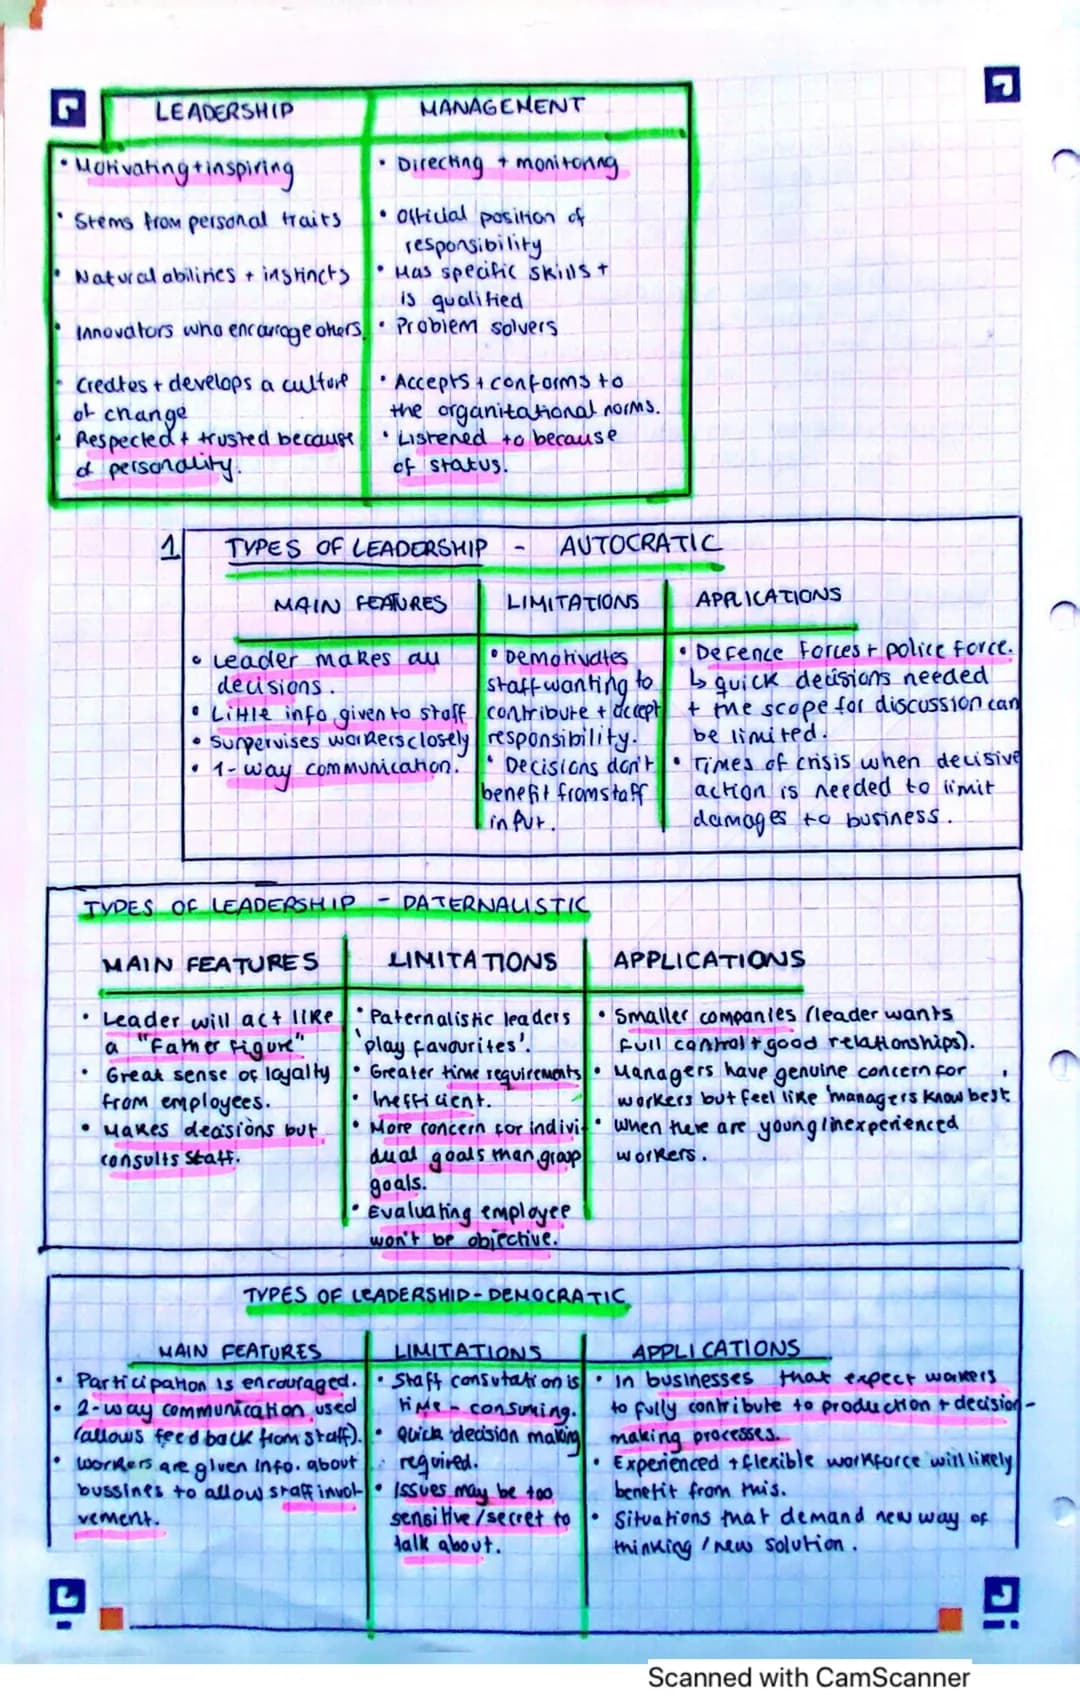 LEADERSHIP
• Motivating + inspiring
• Stems from personal traits
• Natural abilities + instincts
• Innovators who encourage others.
• Creates + develops a culture
of change
• Respected + trusted because
of personality.
MANAGEMENT
• Directing + monitoring
• Official position of
responsibility
• Has specific skills +
is qualified
• Problem solvers
• Accepts + conforms to
the organitational norms.
• Listened to because
of status.
1
TYPES OF LEADERSHIP - AUTOCRATIC
MAIN FEATURES
• Leader makes all
decisions.
• Little info given to staff
• Supervises workers closely
• 1-way communication.
LIMITATIONS
• Demotivates
staff wanting to
contribute + accept
responsibility.
• Decisions don't
benefit from staff
input.
APPLICATIONS
• Defence Forces + police Force.
↳ quick decisions needed
+ the scope for discussion can
be limited.
• Times of crisis when decisive
action is needed to limit
damages to business.
TYPES OF LEADERSHIP - PATERNALISTIC
MAIN FEATURES
• Leader will act like
a "Father Figure"
• Great sense of loyalty
from employees.
• Makes decisions but
consults staff.
LIMITATIONS
• Paternalistic leaders
'play favourites'.
• Greater time requirements
• Inefficient.
• More concern for indivi-
dual goals than group
goals.
• Evaluating employee
won't be objective.
APPLICATIONS
• Smaller companies (leader wants
full control + good relationships).
• Managers have genuine concern for
workers but feel like 'managers know best
• When there are young/inexperienced
workers.
TYPES OF LEADERSHIP - DEMOCRATIC
MAIN FEATURES
• Participation is encouraged.
• 2-way communication used
(allows feedback from staff).
• Workers are given info. about
bussines to allow staff invol-
vement.
LIMITATIONS
• Staff consutation is
time-consuming.
• Quick decision making
required.
• Issues may be too
sensitive/secret to
talk about.
APPLICATIONS
• In businesses that expect workers
to fully contribute to production + decision-
making processes.
• Experienced + flexible workforce will likely
benefit from this.
• Situations that demand new way of
thinking / new solution.
Scanned with CamScanner